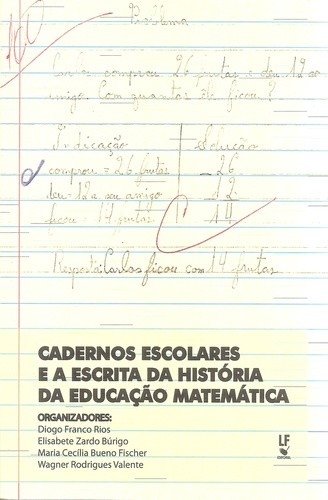 100
Problema
Carlos comprou 26 frutas e deu 12 ao
amigo. Com quantas ele ficou?
Indicação Solução
comprou = 26 frutas - 26
deu - 12 a seu amigo 12
ficou = 14 frutas 14
Resposta: Carlos ficou com 14 frutas
CADERNOS ESCOLARES
E A ESCRITA DA HISTÓRIA
DA EDUCAÇÃO MATEMÁTICA
ORGANIZADORES:
Diogo Franco Rios
Elisabete Zardo Búrigo
Maria Cecília Bueno Fischer
Wagner Rodrigues Valente
LF
EDITORIAL